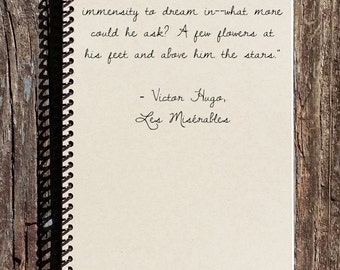 immensity to dream in--what more
could he ask? A few flowers at
his feet and above him the stars."
- Victor Hugo,
Les Misérables